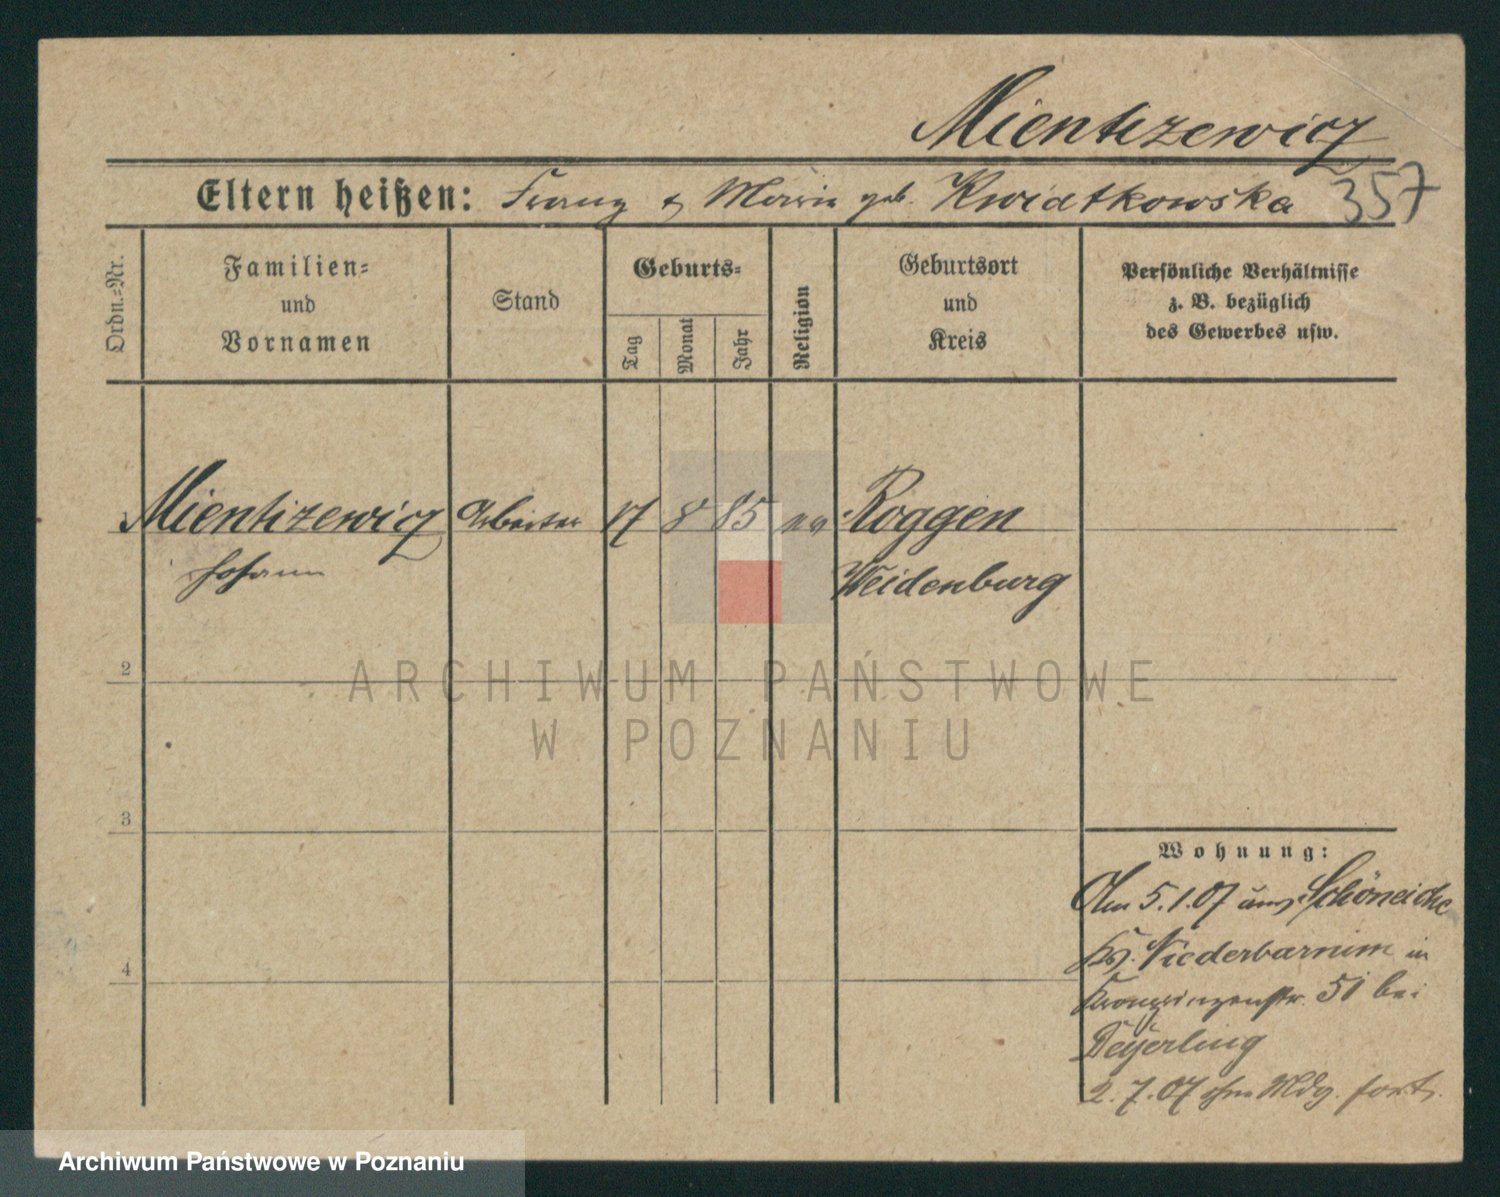 Mientizewicz
Eltern heißen: Franz & Marie geb. Kwiatkowska 357
Ordn.-Nr.
Familien- und Vornamen
Stand
Geburts-
Tag
Monat
Jahr
Religion
Geburtsort und Kreis
Persönliche Verhältnisse
z. B. bezüglich
des Gewerbes usw.
1 Mientizewicz Arbeiter 17 8 85 Roggen
Johann Neidenburg
2
ARCHIWUM PAŃSTWOWE
W POZNANIU
3
Wohnung:
Am 5.1.07 aus Schöneiche
Krs. Niederbarnim in
Kronprinzenstr. 51 bei
Deyerling
4
2.7.07 ohne Mldg. fort.
Archiwum Państwowe w Poznaniu